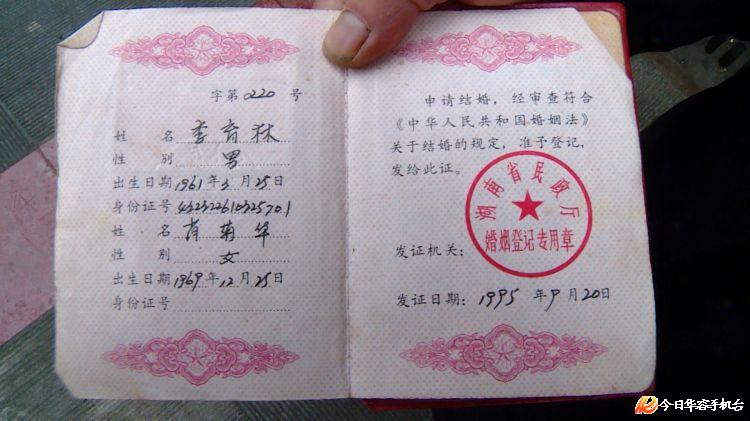 字第0220号
姓 名 李育林
性 别 男
出生日期1961年3月25日
身份证号
姓 名 肖菊华
性 别 女
出生日期1969年12月25日
身份证号
申请结婚，经审查符合
《中华人民共和国婚姻法》
关于结婚的规定，准予登记，
发给此证。
湖南省民政厅
婚姻登记专用章
发证机关：
发证日期：1995 年9月20日
今日华容手机台